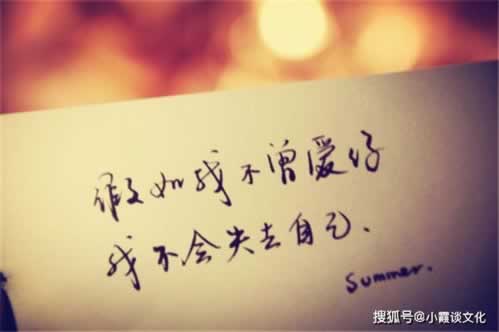 假如我不曾爱你
我不会失去自己.
summer.
搜狐号@小霞谈文化